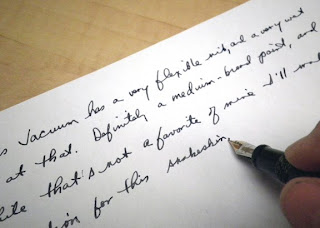 s Vacuum has a very flexible nib, and a very wet
at that. Definitely a medium-broad point, and
hile that's not a favorite of mine I'll
tion for this snakeskin